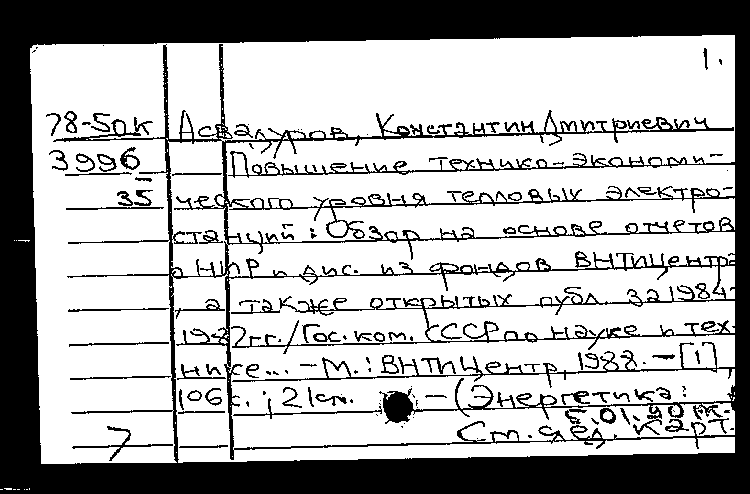 1.
78-50к Асвадуров, Константин Дмитриевич
3996 Повышение технико-экономи-
35 ческого уровня тепловых электро-
станций: Обзор на основе отчетов
о НИР и дис. из фондов ВНТИЦентра
, а также открытых публ. за 1984-
1987гг./Гос.ком. СССР по науке и тех-
нике... - М.: ВНТИЦентр, 1988. - [1],
106с.; 21см. - (Энергетика:
5.01.90
См. след. карт.
7